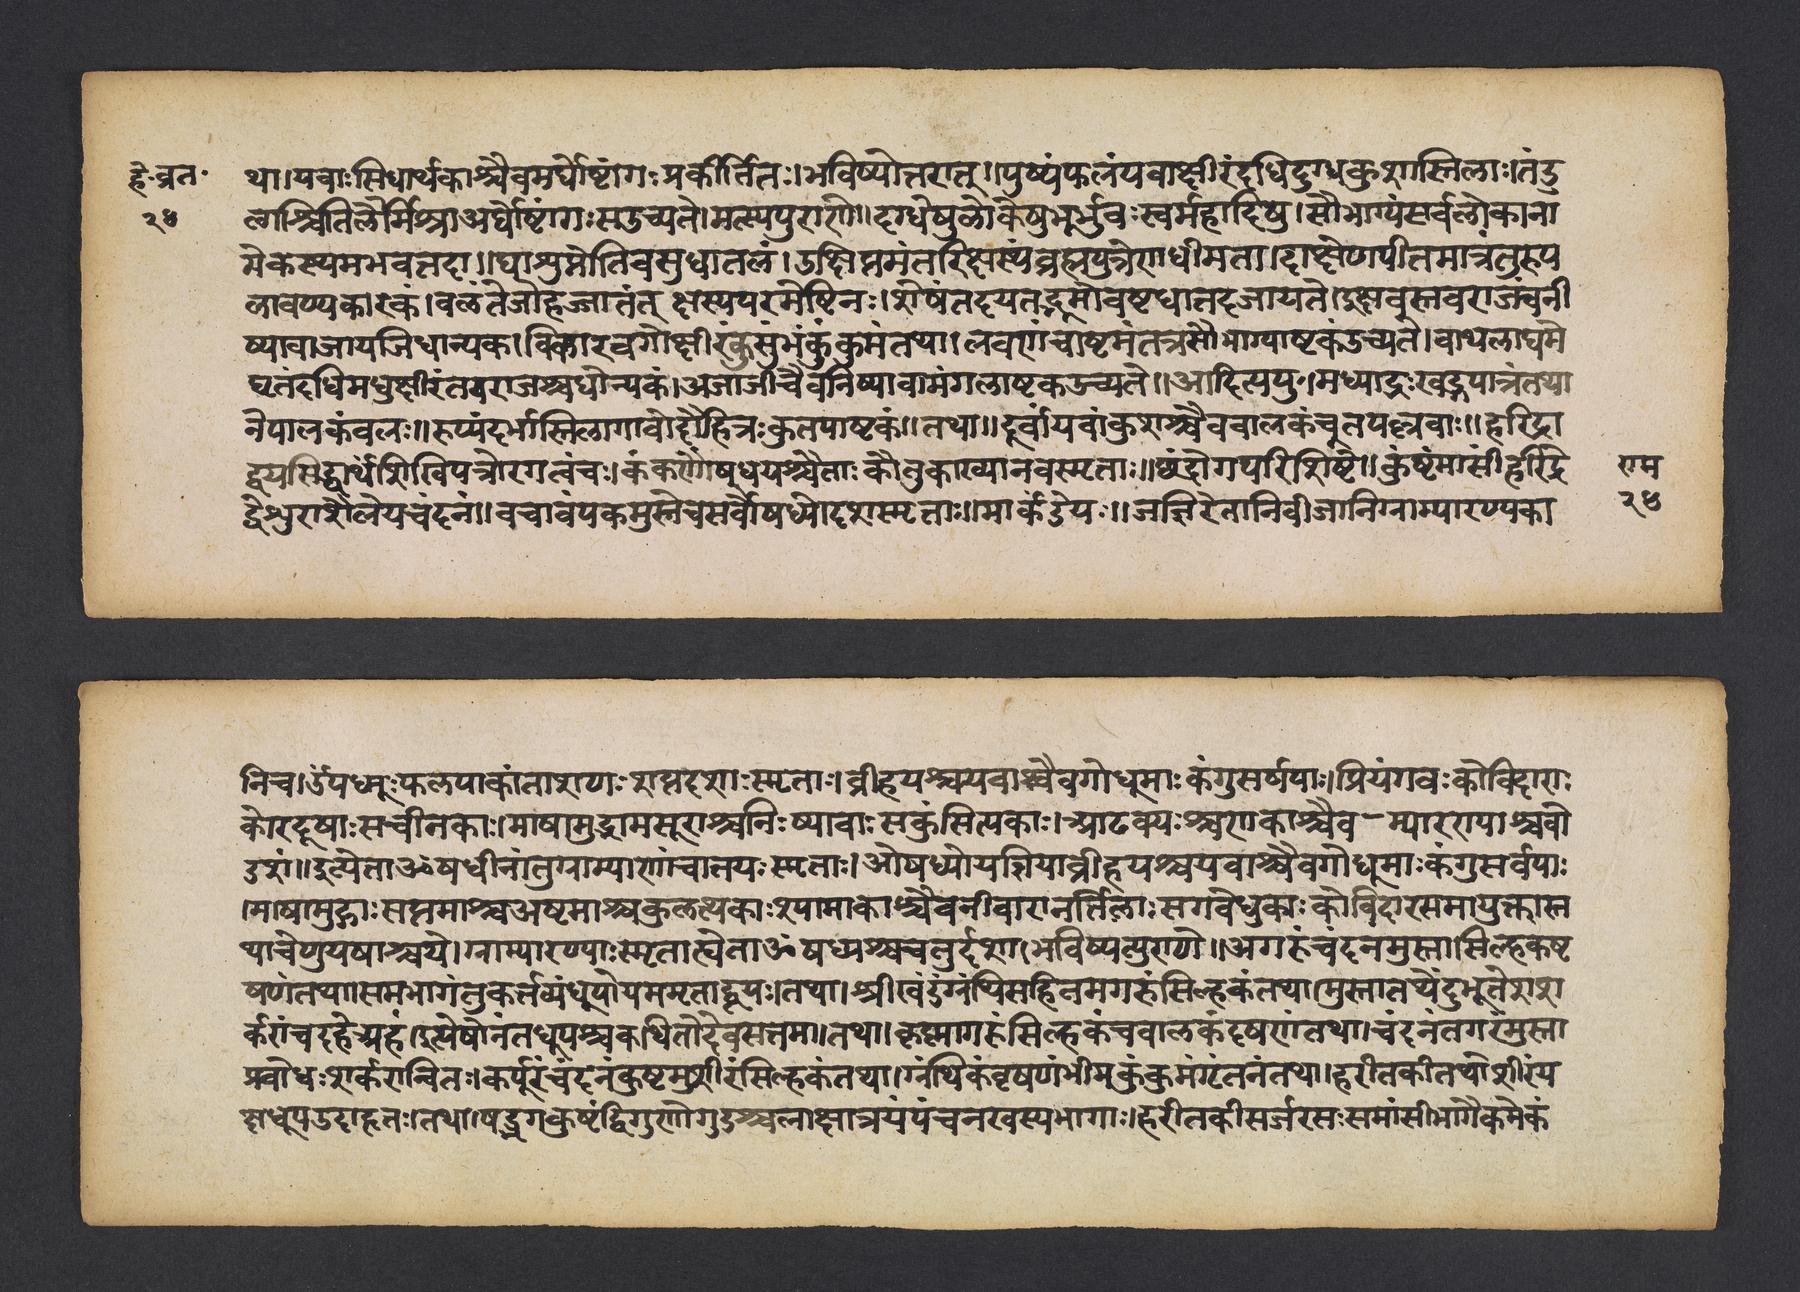 हे॰व्रत॰
२४
था।यवाःसिधार्थकाश्चैवमर्घोष्टांगःप्रकीर्तितः।भविष्योत्तरात्॥पुष्पंफलंयवाक्षीरंदधिदुग्धकुशास्तिलाः।तंदु
लाश्चितिलैर्मिश्राअर्घोष्टांगःसउच्यते।मत्स्यपुराणे॥दग्धेषुळोकेषुभूर्भुवःस्वर्महादिषु।सौभाग्यंसर्वलोकाना
मेकस्यमभवत्तदा॥घाश्युमोतिवसुधातलं।उक्षिप्तमंतरिक्षस्यंब्रह्मपुत्रेणधीमता।दाक्षेणपीतमात्रंतुरुप
लावण्यकारकं।बळंतेजोहिज्जातंत् क्षस्यपरमेष्टिनः।शेषंतदयतद्भूमोवष्टधातदजायते।इक्षवुस्तवराजंचनी
ष्यावाजायजिधान्यक।विकारवगोक्षीरंकुसुंभंकुंकुमंतथा।लवणंचाष्टमंतत्रसौभाग्याष्टकंउच्यते।वाथलाघमे
घृतंदधिमधुक्षीरंतवराजश्चधान्यकं।अजाजीचैवनिष्यावामंगलाष्टकउच्यते॥आदित्यपु॰।मध्याद्रःखड्गपात्रंतथा
नेपालकंबलः॥रुप्यंदर्भास्तिलागावोदौहित्रःकुतपाष्टकं॥तथा॥दूर्वायवांकुराश्चैववालकंचूतपल्लवाः॥हरिद्रा
द्वयसिद्धार्थशिखिपत्रोरगत्वंचः।कंकणोषुधयश्चैताःकौतुकाख्यानवस्मृताः॥छंदोगपरिशिष्टे॥कुष्टंमांसीहरिद्रे
द्वेशुराशैलेयचंदनं॥वचाचंपकमुस्तेचसर्वौषध्योदशस्मृताः॥मार्कंडेयः॥जज्ञिरेतानिवीजानिग्राम्यारण्यका
राम
२४
निच।उंषध्यःफलपाकांताशणःशप्तदशाःस्मृताः।व्रीहयश्चयवाश्चैवगोधूमाःकंगुसर्षपाः।प्रियंगवःकोविदाराः
कोरदूषाःसचीनकाः।माषामुद्गामसूराश्चनिःष्यावाःसकुंसित्यकाः।आढक्यःश्चणकाश्चैव-म्यारराघाश्चवो
डशं॥इत्येताॐषधीनांतुग्राम्याणांचातयःस्मताः।ओषध्योयज्ञियाव्रीहयश्चयवाश्चैवगोधूमाःकंगुसर्वपाः
।माषामुद्गाःसप्तमाश्चअष्टमाश्चकुलत्थकाःश्यामाकाश्चैवनीवारानर्तिलाःसगवेधुकाःकोविदारसमायुक्तास्त
थाचेणुयषाश्चये।ग्राम्यारण्याःस्मृतात्येताॐषध्यश्चचतुर्दश।भविष्यत्पुराणे॥अगरुंचंदनमुस्ता।सिल्हकष्ट
षणंतथा।समभागंतुकर्तव्यंधूपोयममृताह्वयः।तथा।श्रीखंडंग्रंथिसहितमगरुंसिल्हकंतथा।मुस्तातथेंदुभूतेशश
र्करांचदहेत्र्यहं।इत्येषोनंतधूपश्चकथितोदेवसत्तमा।तथा।कृष्णागरुंसिल्हकंचवालकंदृषणंतथा।चंदनंतगरंमुस्ता
प्रवोधःशर्करान्वितः।कर्पूरंचंदनंकुष्टमुशीरंसिल्हकंतथा।ग्रंथिकंवृषणंभीमकुंकुमंगंतनंतथा।हरीतकीतथोशीरंय
क्षधूपउदाहृतः।तथा।षद्भगकुष्टंद्विगुणोगुडश्चलाक्षात्रयंपंचनखस्यभागाः।हरीतकीसर्जरसःसमांसीभागैकमेकं